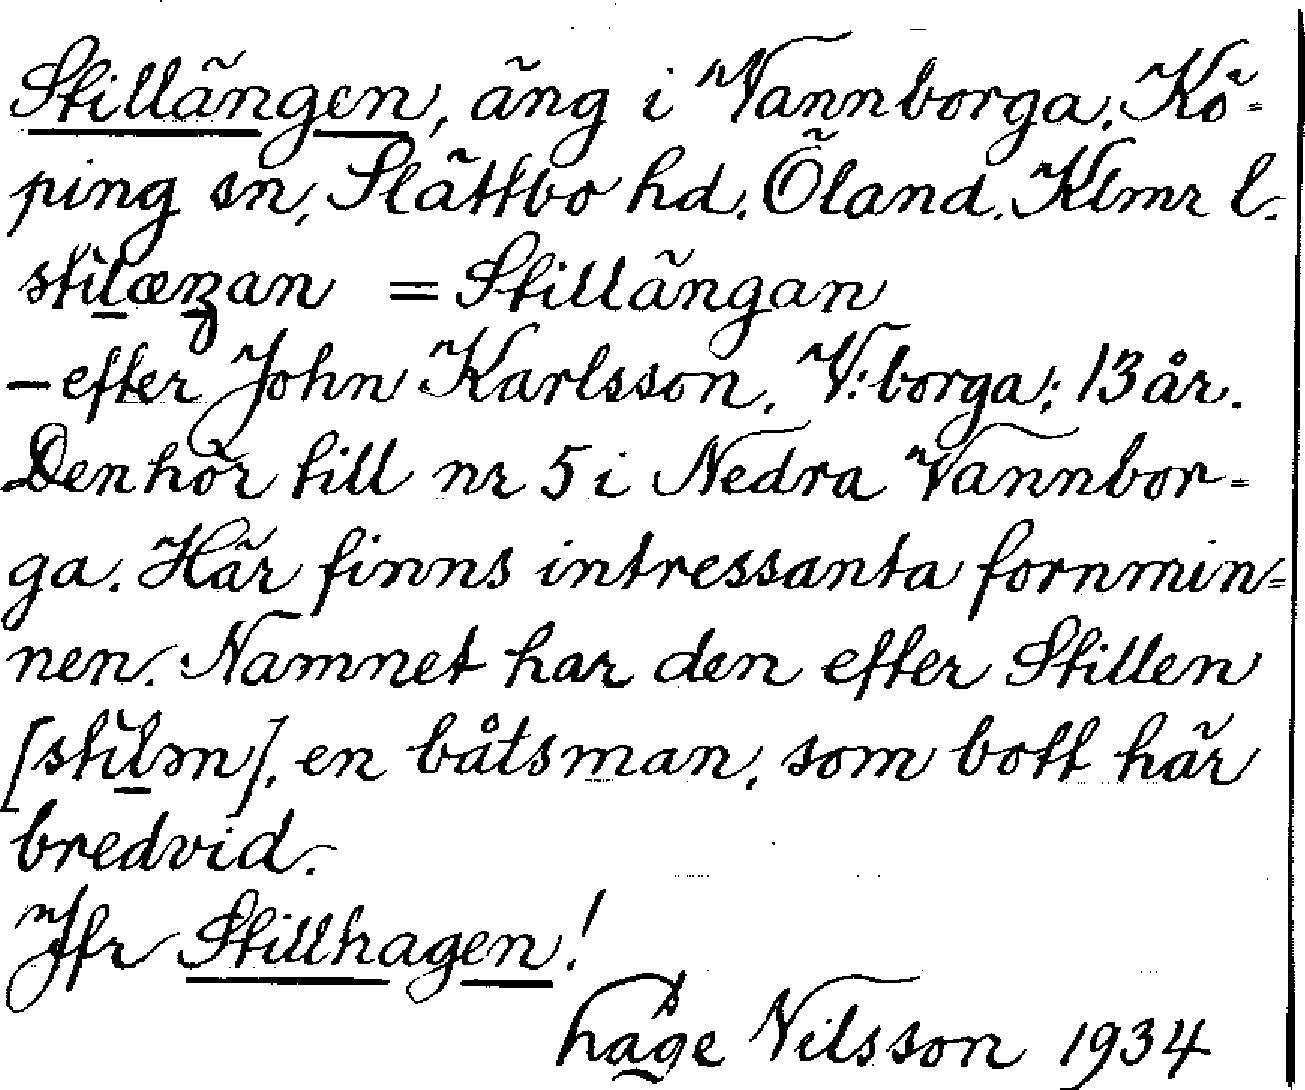 Stillängen, äng i Vannborga, Kö-
ping sn, Slättbo hd. Öland. Klmr l.
stilæŋan = Stillängan
– efter John Karlsson, V:borga; 13 år.
Den hör till nr 5 i Nedra Vannbor-
ga. Här finns intressanta fornmin-
nen. Namnet har den efter Stillen
[stilən], en båtsman, som bott här
bredvid.
Jfr Stillhagen!
Håge Nilsson 1934